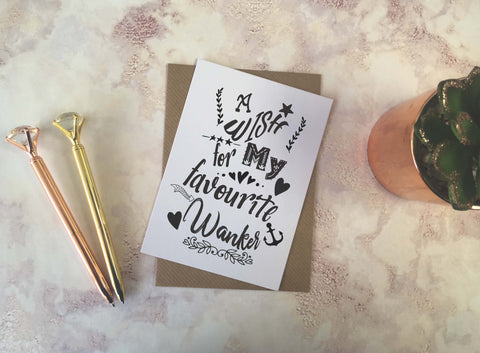 A
Wish
for My
favourite
Wanker